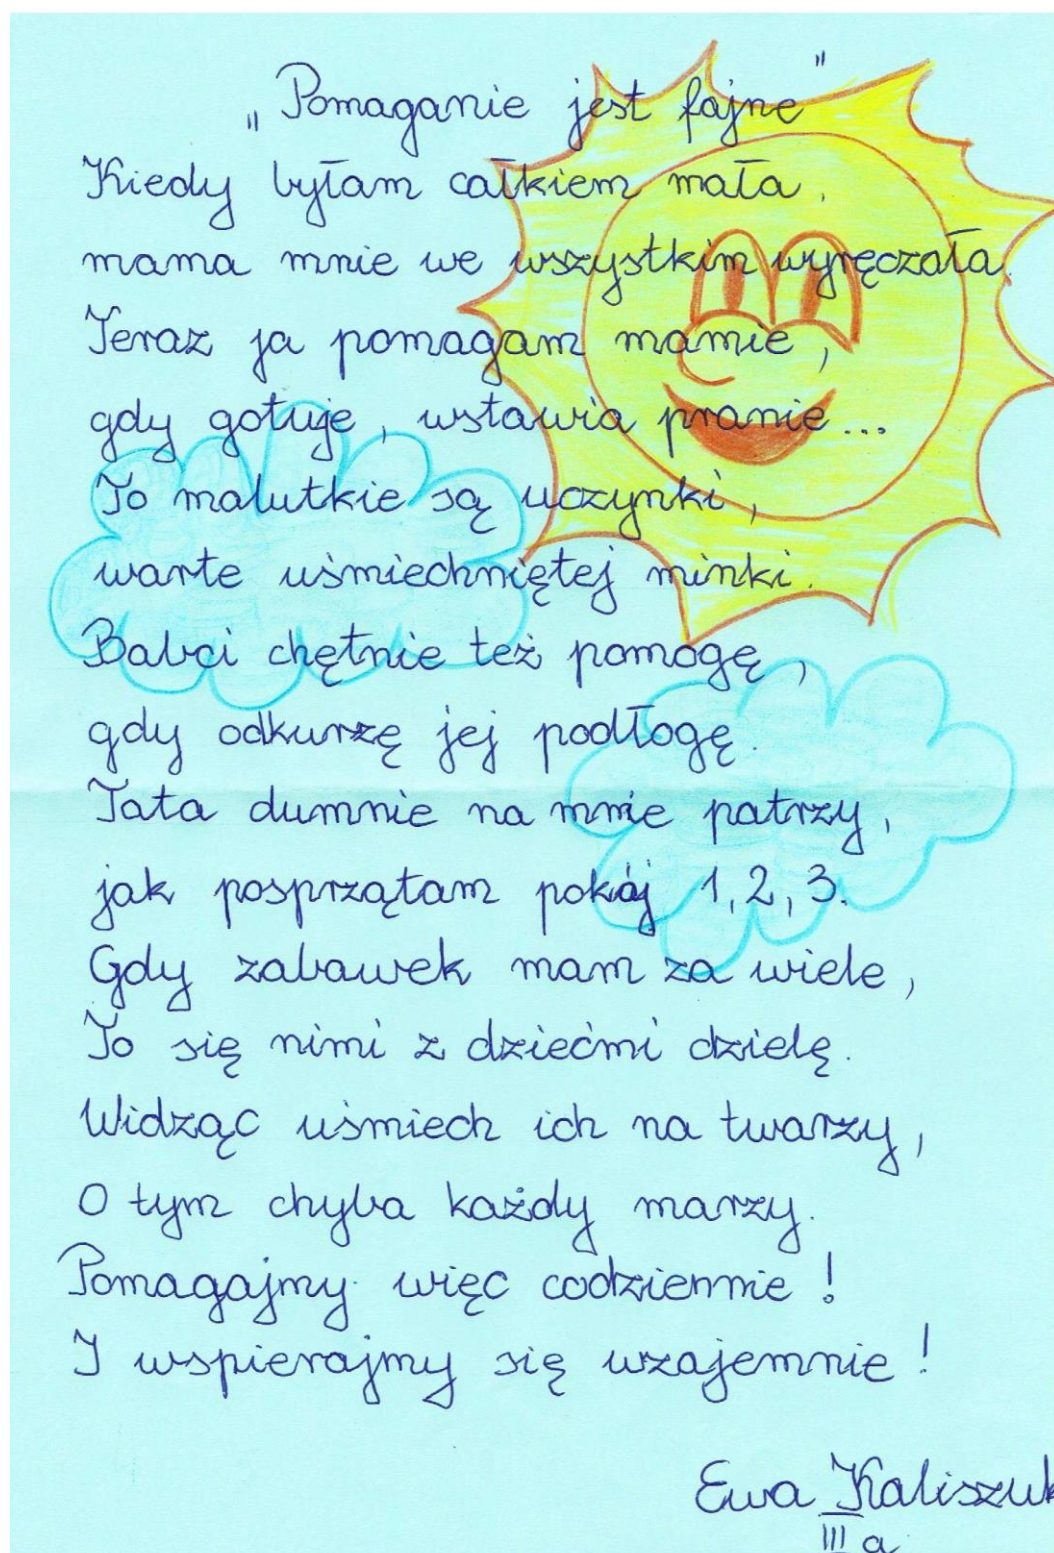 „Pomaganie jest fajne”
Kiedy byłam całkiem mała,
mama mnie we wszystkim wyręczała.
Teraz ja pomagam mamie,
gdy gotuje, wstawia pranie...
To malutkie są uczynki,
warte uśmiechniętej minki.
Babci chętnie też pomogę,
gdy odkurzę jej podłogę.
Tata dumnie na mnie patrzy,
jak posprzątam pokój 1, 2, 3.
Gdy zabawek mam za wiele,
To się nimi z dziećmi dzielę.
Widząc uśmiech ich na twarzy,
O tym chyba każdy marzy.
Pomagajmy więc codziennie!
I wspierajmy się wzajemnie!
Ewa Kaliszuk
III a